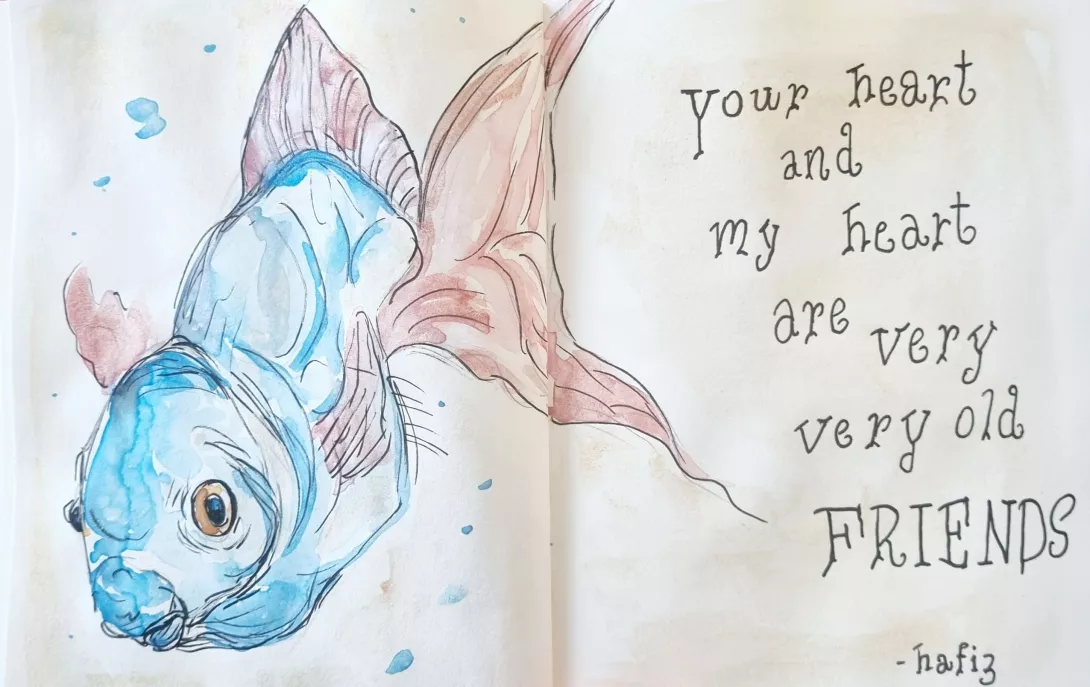 your heart
and
my heart
are very
very old
FRIENDS
-hafiz